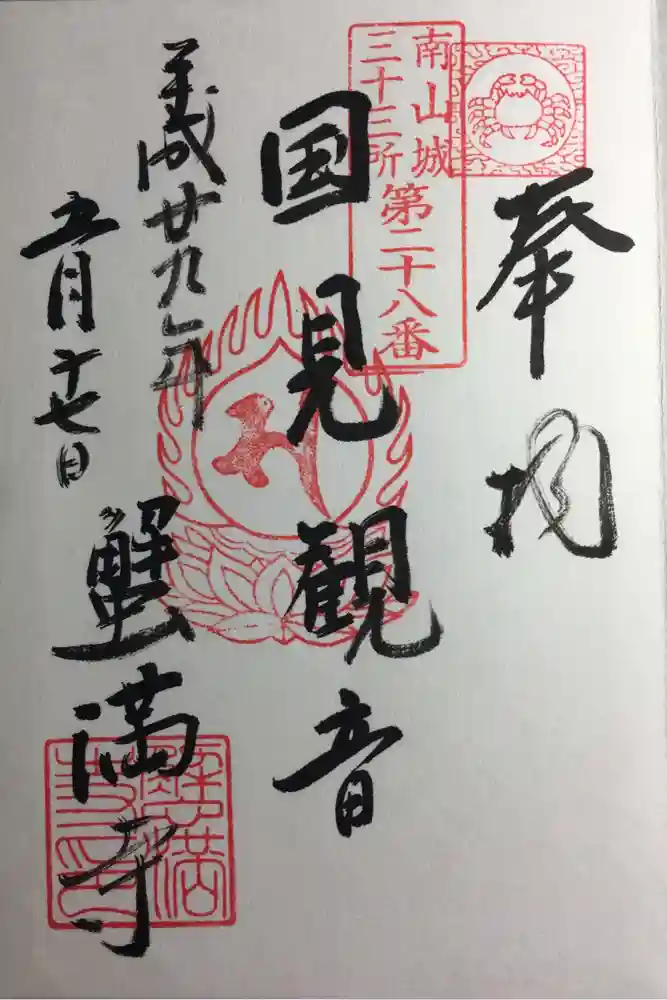 奉拝
南山城
三十三所
第二十八番
国見観音
平成廿九年
五月十七日
蟹満寺
蟹満寺印